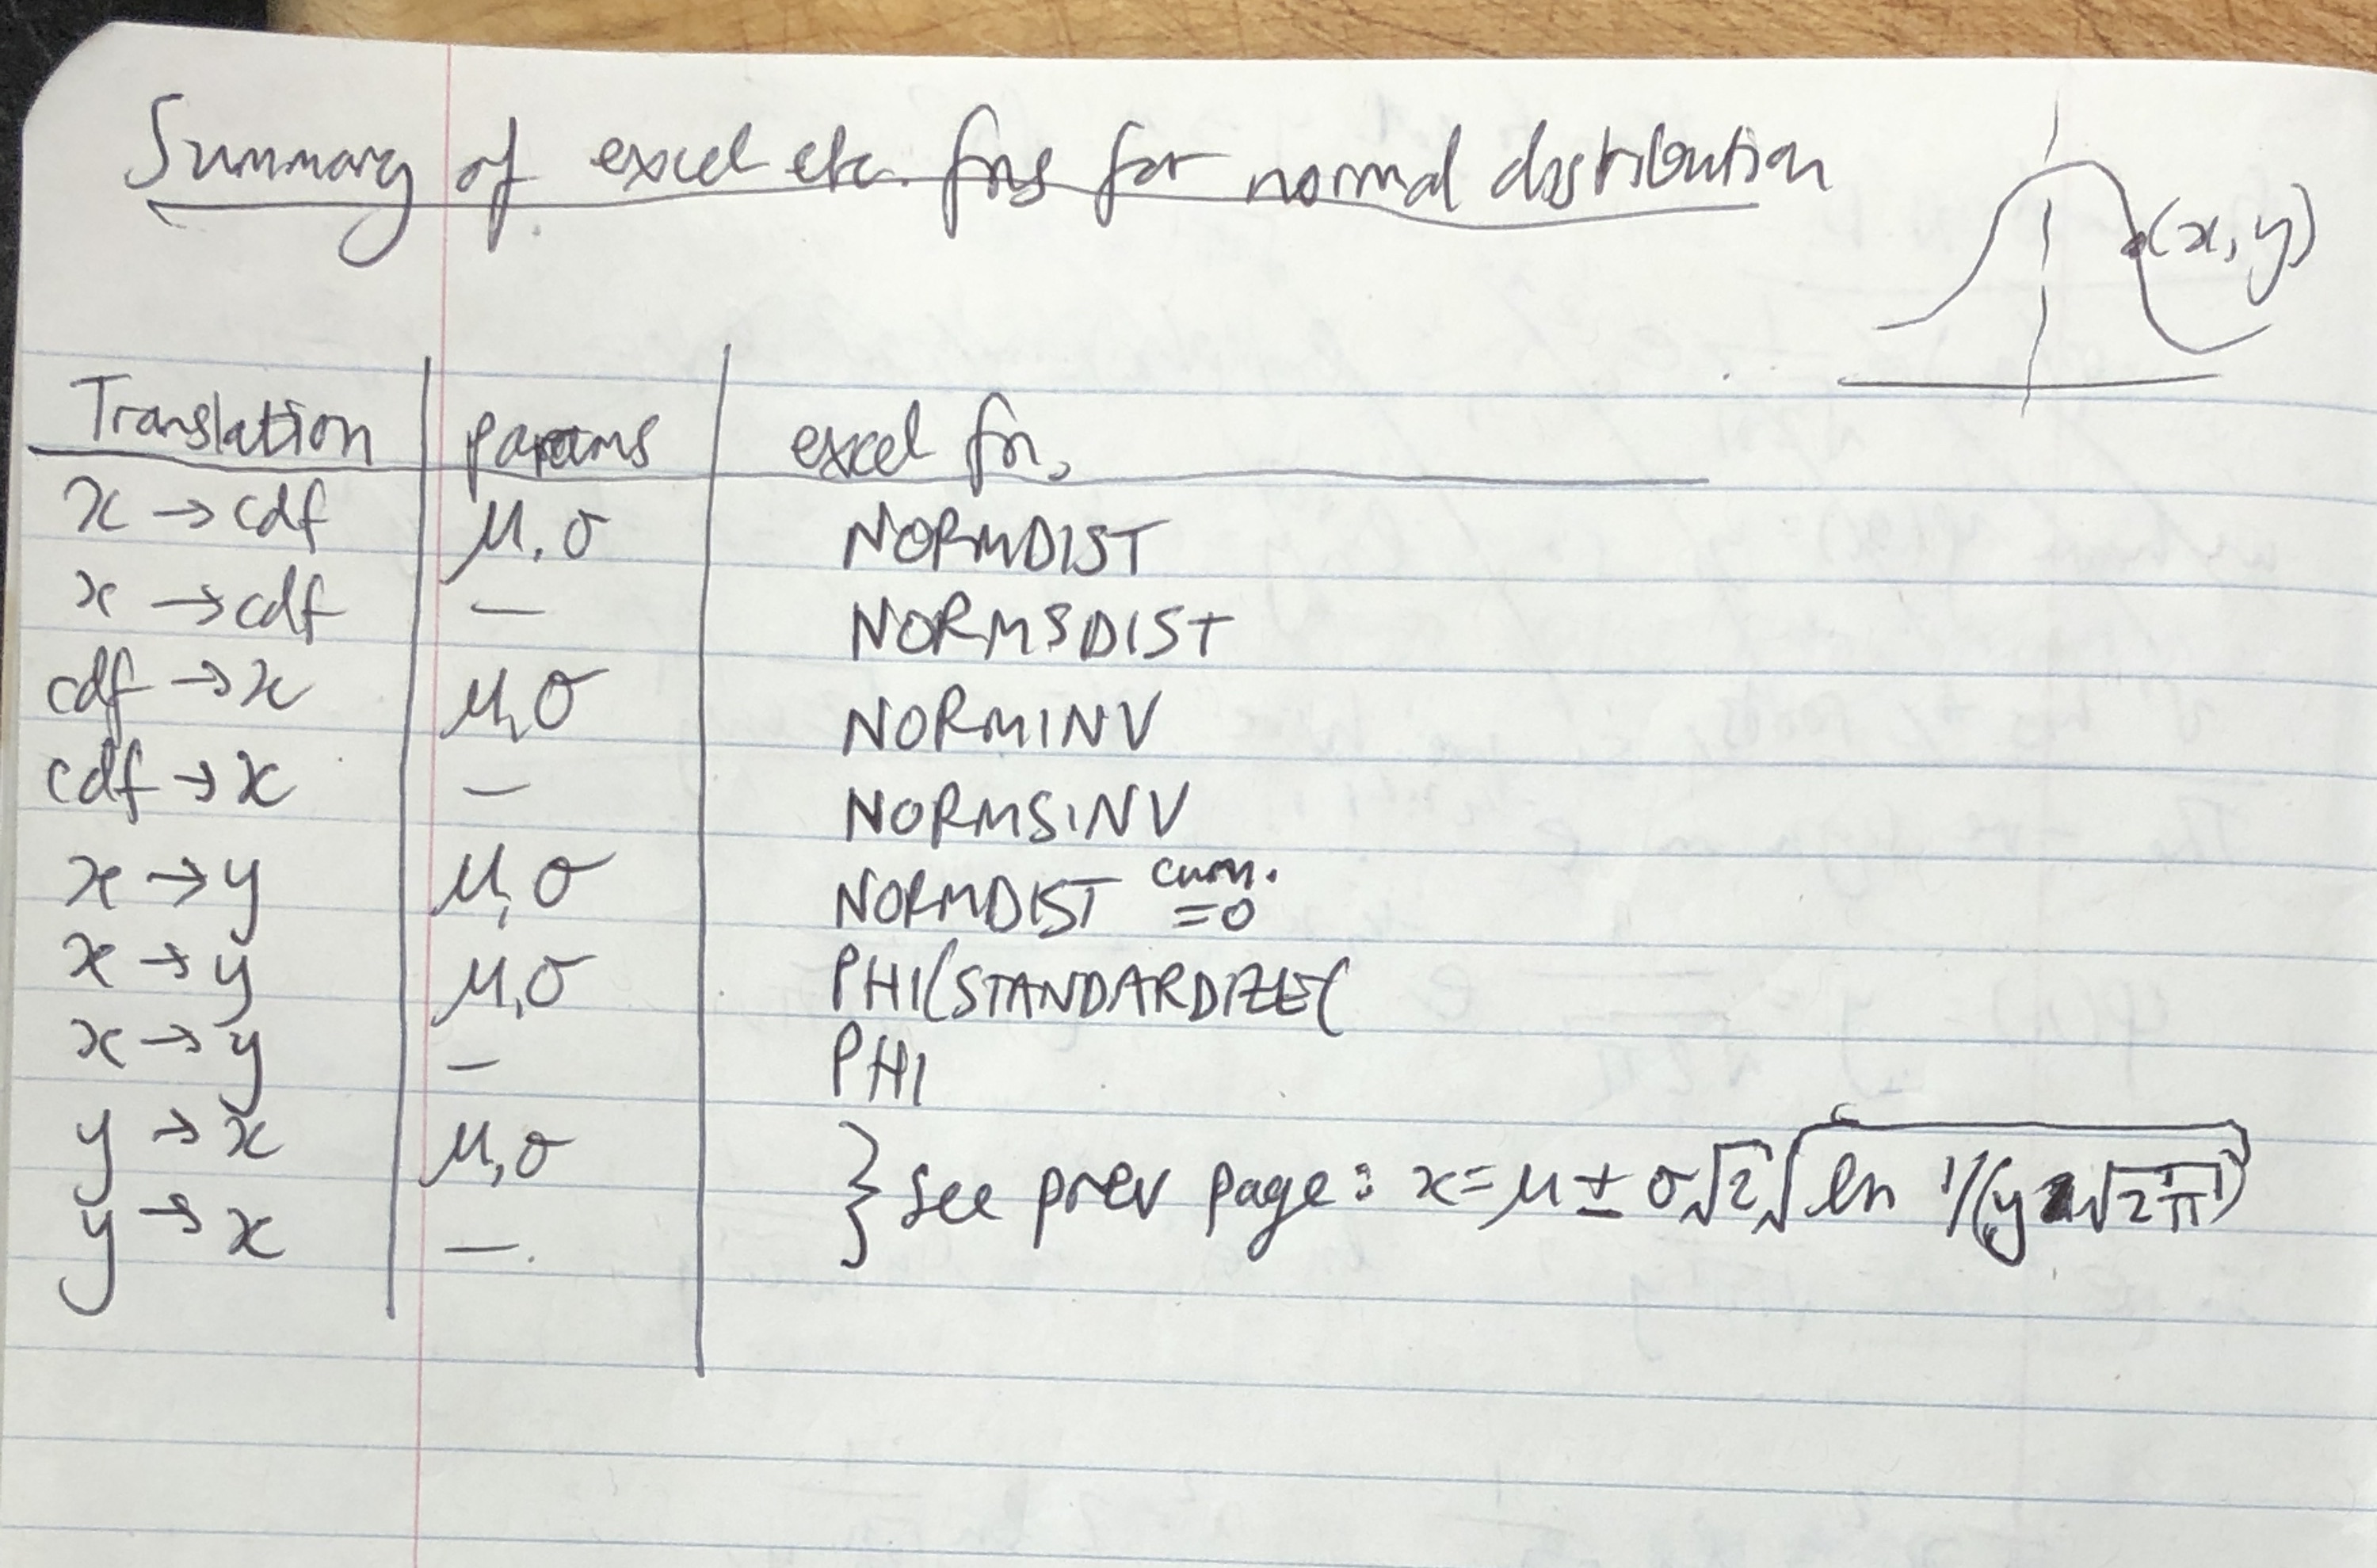 Summary of excel etc. fns for normal distribution
(x, y)
Translation params excel fn.
x → cdf μ, σ NORMDIST
x → cdf — NORMSDIST
cdf → x μ, σ NORMINV
cdf → x — NORMSINV
x → y μ, σ NORMDIST cum. =0
x → y μ, σ PHI(STANDARDIZE(
x → y — PHI
y → x μ, σ } see prev page: x = μ ± σ√2√ln 1/(y√2π)
y → x —